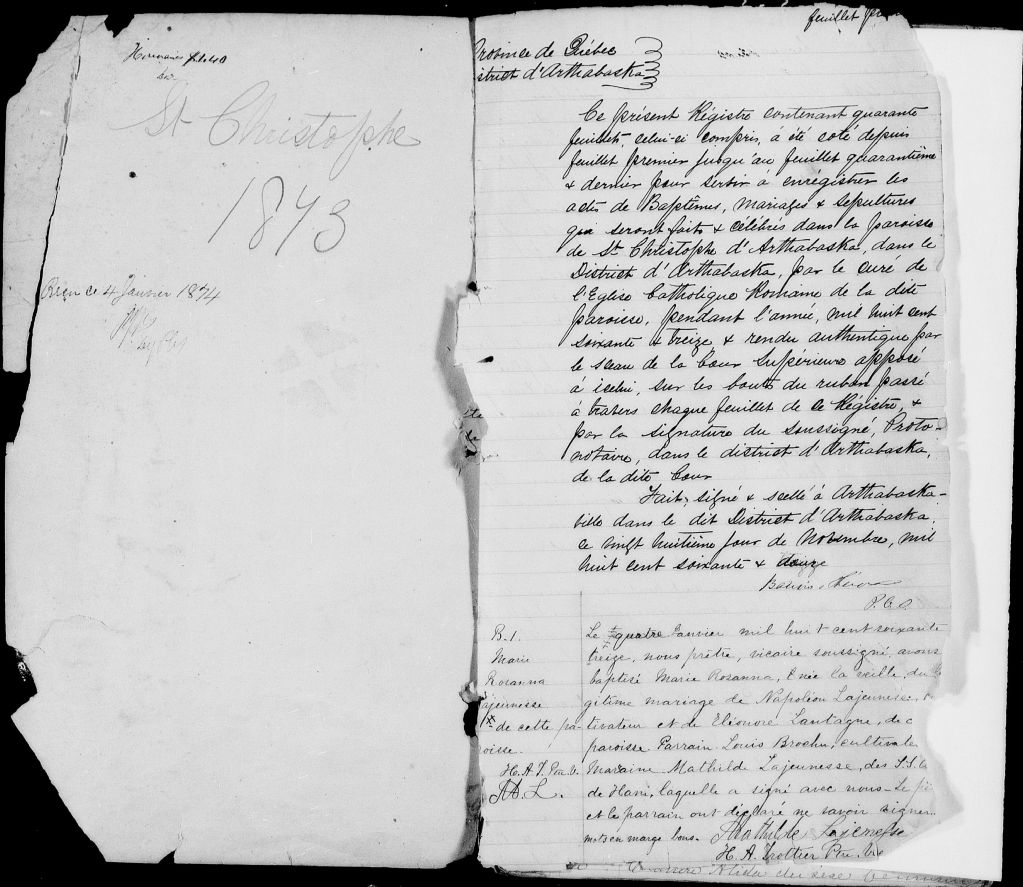 St Christophe
1873
Reçu ce 4 Janvier 1874
feuillet
Province de Québec
district d'Arthabaska
Ce présent Régistre contenant quarante
feuillets, celui-ci compris, a été coté depuis
feuillet premier jusqu'au feuillet quarantième
& dernier pour servir à enrégistrer les
actes de Baptêmes, Mariages & Sépultures
qui seront faits & célébrés dans la paroisse
de St Christophe d'Arthabaska, dans le
District d'Arthabaska, par le curé de
l'Eglise Catholique Romaine de la dite
paroisse, pendant l'année, mil huit cent
soixante & treize & rendu authentique par
le sceau de la Cour Supérieure apposé
à icelui, sur les bouts du ruban passé
à travers chaque feuillet de ce Régistre, &
par la signature du soussigné, Proto-
notaire, dans le district d'Arthabaska,
de la dite Cour
Fait, signé & scellé à Arthabaska-
ville dans le dit District d'Arthabaska,
ce vingt huitième jour de Novembre, mil
huit cent soixante & douze
P.C.S.
B. 1.
Marie
Rosanna
Lajeunesse
de cette pa-
roisse.
H. A. T. Ptre V.
M. L.
Le quatre Janvier mil huit cent soixante
treize, nous prêtre, vicaire soussigné, avons
baptisé Marie Rosanna, née la veille du lé
gitime mariage de Napoléon Lajeunesse, 
tivateur et de Eléonore Lantagne, de c
paroisse Parrain Louis Brochu, cultivate
Marraine Mathilde Lajeunesse, des S.S.
de Ham, laquelle a signé avec nous. Le pè
et le parrain ont déclaré ne savoir signer.
mots en marge bons. Mathilde Lajeunesse
H. A. Trottier Ptre. Vic